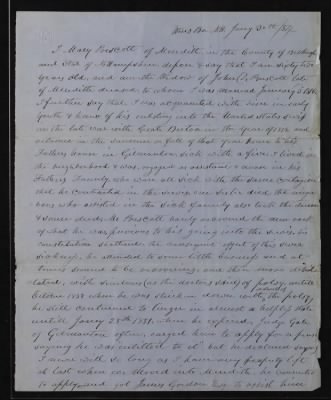 I Mary Prescott of Meredith, in the County of
and State of N Hampshire depose & say that I am sixty two
years old, and am the Widow of John Prescott late
of Meredith deceased to whom I was married January
I further say that I was acquainted with him in early
youth & knew of his enlisting into the United States service
in the late War with Great Britain in the year of 1812 and
returned in the summer or fall of that year home to his
Fathers house in Gilmanton sick with a fever I lived in
the neighborhood & was engaged as assistant & nurse in his
Fathers Family, who were all sick with the same contagion
that he contracted in the service, one Sister died, the
ones who assisted in the sick family also took the disease
& some died. Mr Prescott barely recovered the
of what he was previous to his going into the service, his
constitution
sickness, he attended to some little business and at
times seemed to be recovering, and then more
with symtoms (as the doctors said) of palsy, untill
October when he was struck down with the palsy,
he still continued to linger in almost a helpless state
untill Jany 28th when he expired, Judge Gale
of Gilmanton often urged him to apply for a pension
saying he was entitled to it but he declined saying
I never will so long as I have any property left
at last when we moved into Meredith he consented
to apply, and got James Gordon Esq. to assist him